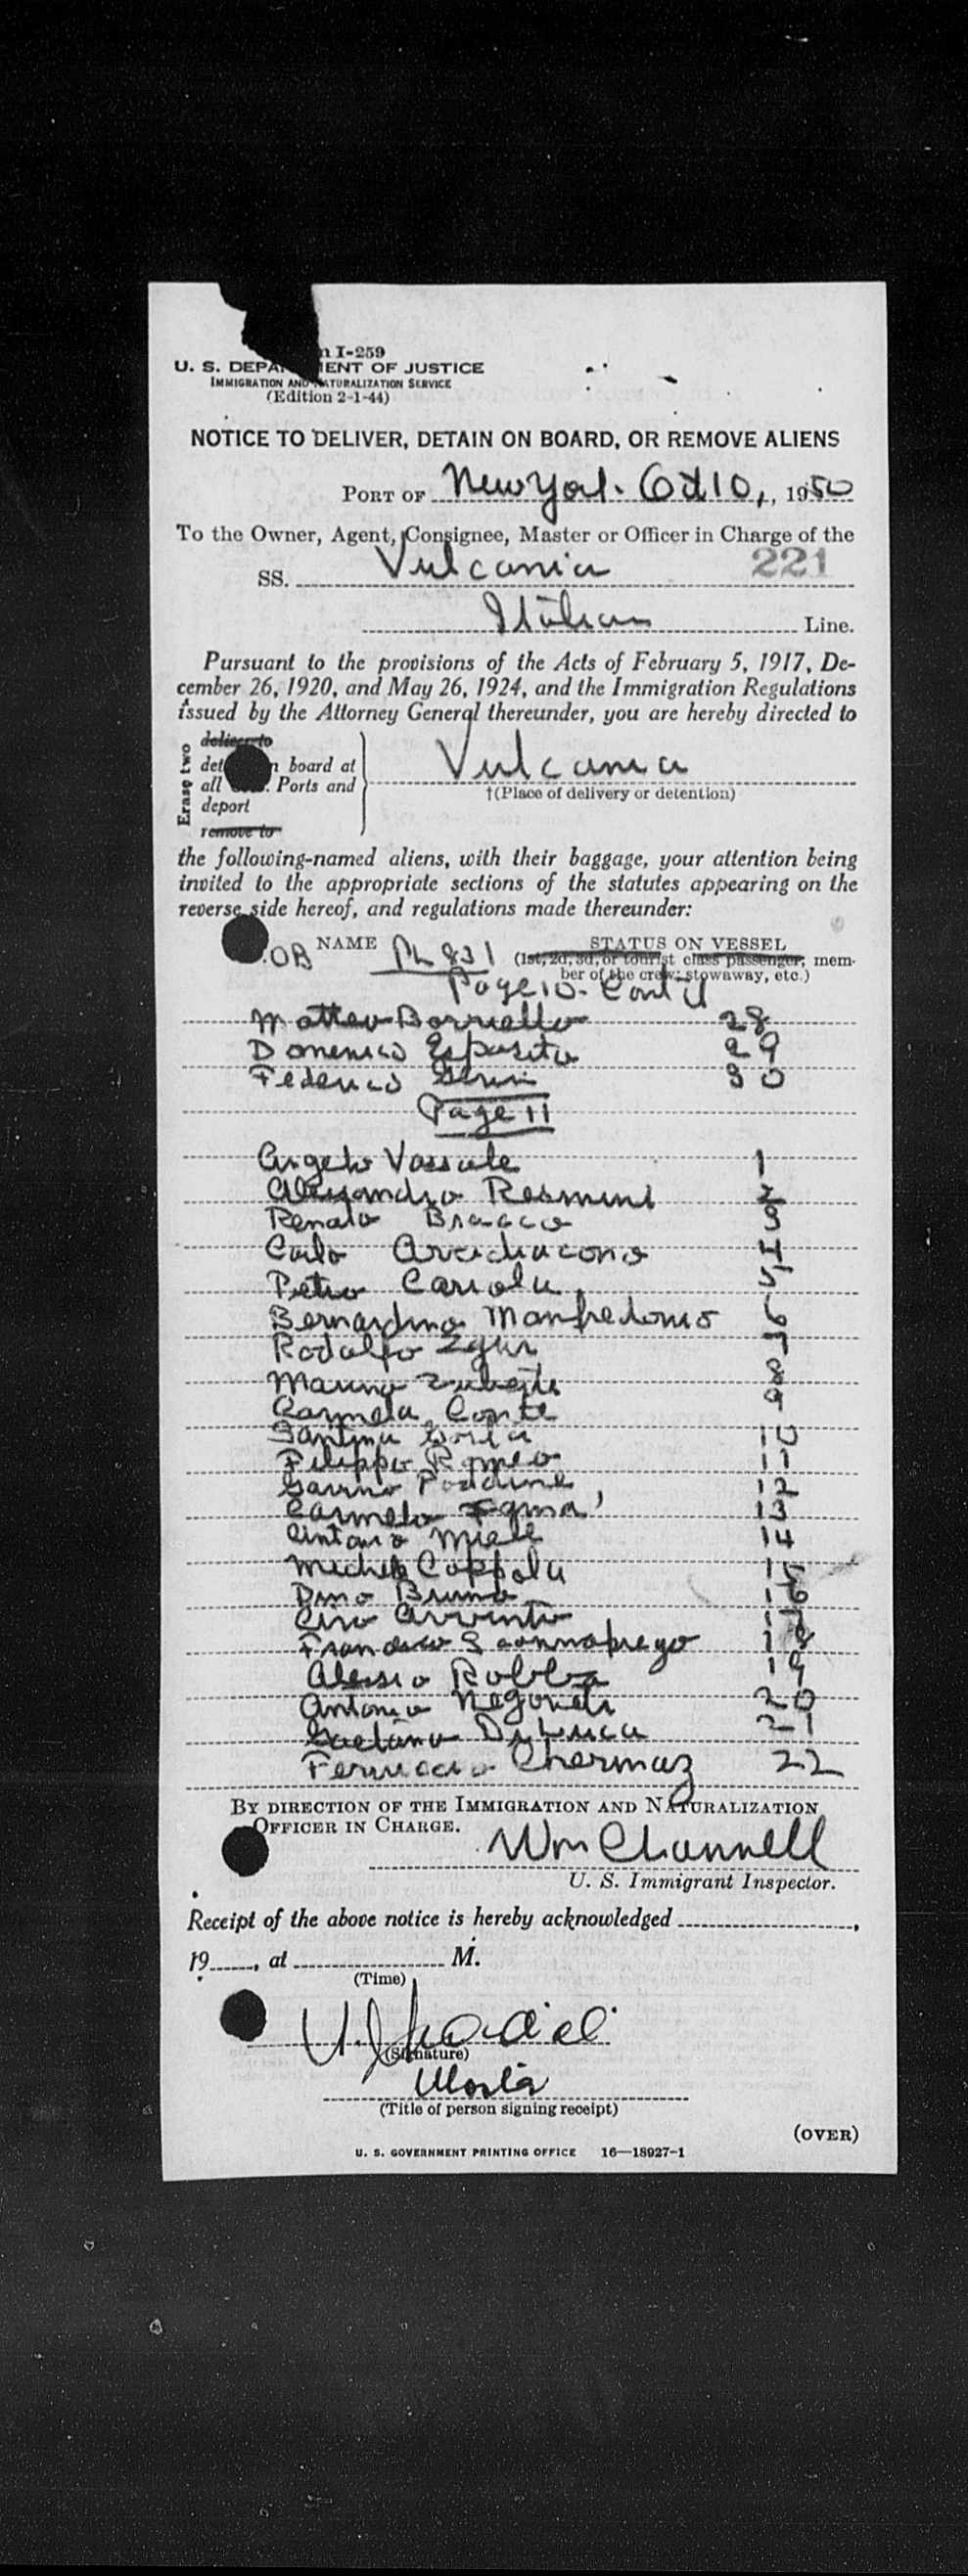 n I-259
U. S. DEPA MENT OF JUSTICE
IMMIGRATION AND NATURALIZATION SERVICE
(Edition 2-1-44)
NOTICE TO DELIVER, DETAIN ON BOARD, OR REMOVE ALIENS
PORT OF New York Oct 10, 1950
To the Owner, Agent, Consignee, Master or Officer in Charge of the
SS. Vulcania 221
Italian Line.
Pursuant to the provisions of the Acts of February 5, 1917, De-
cember 26, 1920, and May 26, 1924, and the Immigration Regulations
issued by the Attorney General thereunder, you are hereby directed to
Erase two
deliver to
det n board at
all . Ports and
deport
remove to
Vulcania
†(Place of delivery or detention)
the following-named aliens, with their baggage, your attention being
invited to the appropriate sections of the statutes appearing on the
reverse side hereof, and regulations made thereunder:
OB NAME PL 831 STATUS ON VESSEL
(1st, 2d, 3d, or tourist class passenger, mem-
ber of the crew; stowaway, etc.)
Page 10. Cont'd
Matteo Borriello 28
Domenico Esposito 29
Federico 30
Page 11
Angelo Vassale 1
Alessandro Resmini 2
Renato Bracco 3
Carlo Arcidiacono 4
Pietro Cariola 5
Bernardino Manfredonio 6
Rodolfo 7
Marino 8
Carmela Conte 9
Santina 10
Filippo Romeo 11
Gavino 12
Carmelo 13
Antonio Miele 14
Michele Coppola 15
Dino Bruno 16
Ciro 17
Francesco 18
Alessio Robba 19
Antonio 20
Gaetano De Luca 21
Ferruccio Chermaz 22
BY DIRECTION OF THE IMMIGRATION AND NATURALIZATION
OFFICER IN CHARGE.
Wm Channell
U. S. Immigrant Inspector.
Receipt of the above notice is hereby acknowledged ,
19 , at M.
(Time)
(Signature)
(Title of person signing receipt)
(OVER)
U. S. GOVERNMENT PRINTING OFFICE 16—18927-1